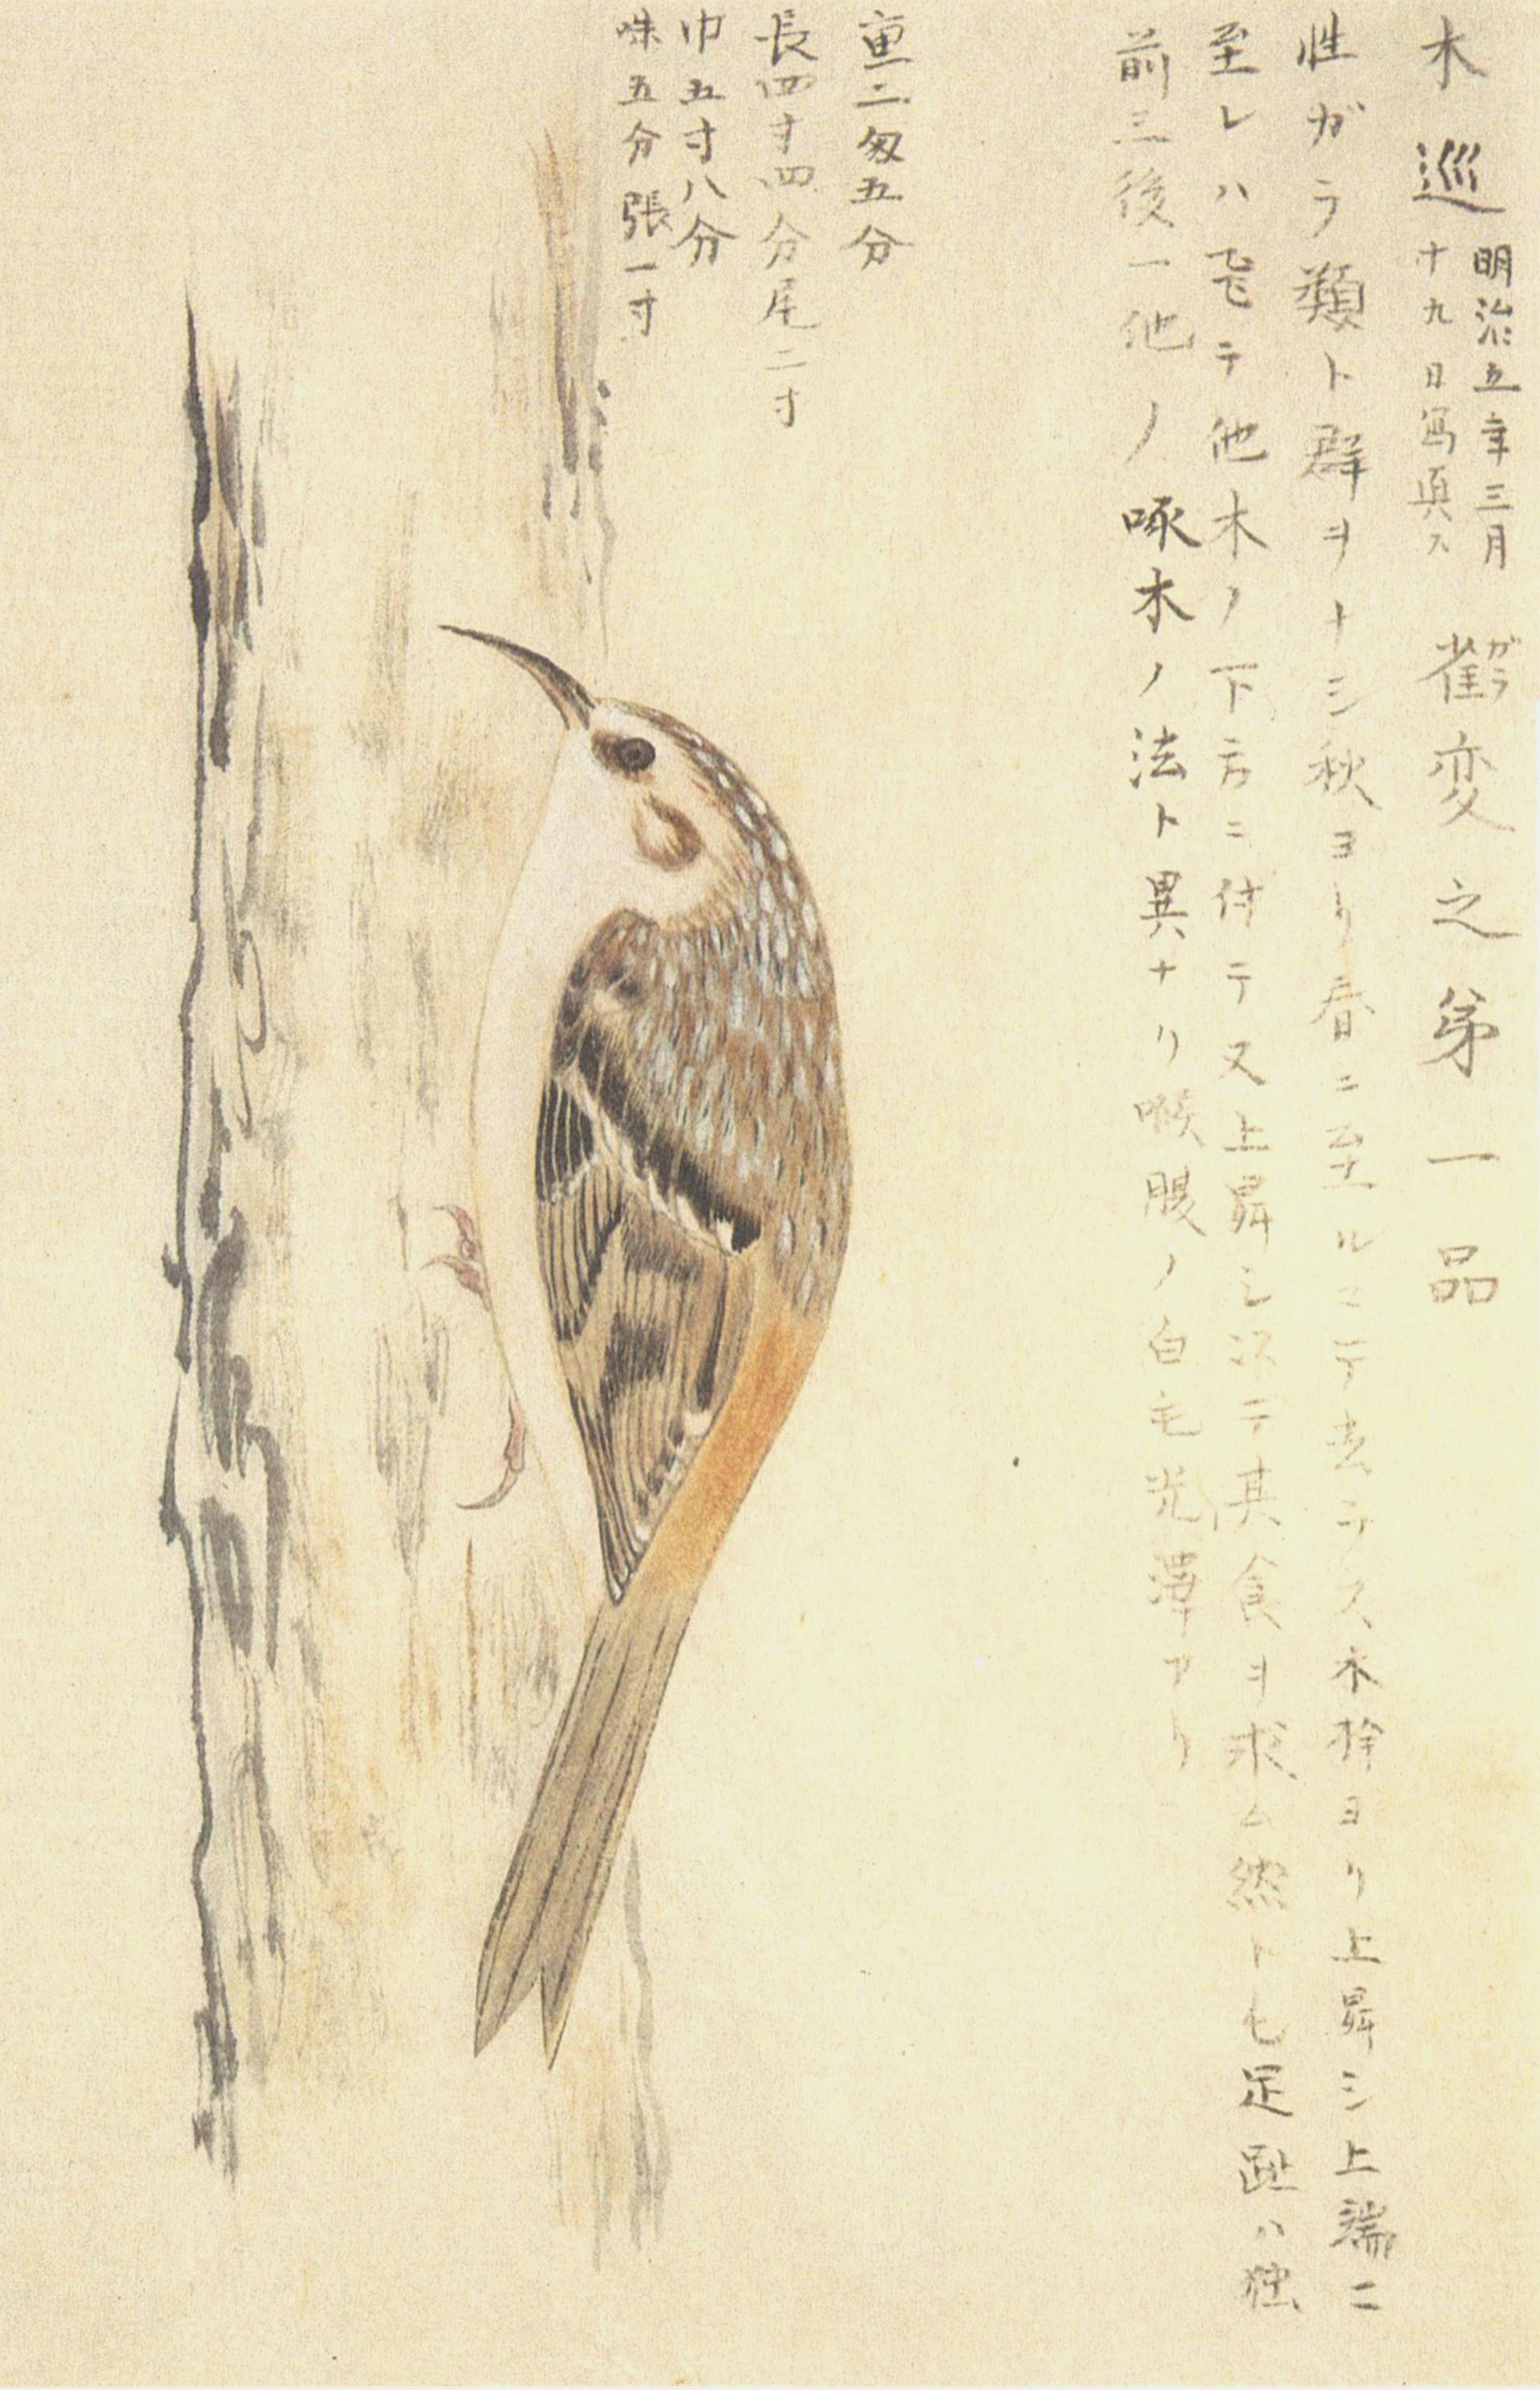 木巡 明治五年三月
十九日写真ス 雀変之第一品
ガラ
性ガラ類ト群ヲナシ秋ヨリ春ニ至ルニテ去ラス木幹ヨリ上昇シ上端ニ
至レハ飛テ他木ノ下方ニ付テ又上昇シ次テ其食ヲ求ム然トモ足趾ハ独
前三後一他ノ啄木ノ法ト異ナリ喉腹ノ白毛光澤アリ
重二匁五分
長四寸四分尾二寸
巾五寸八分
咮五分張一寸